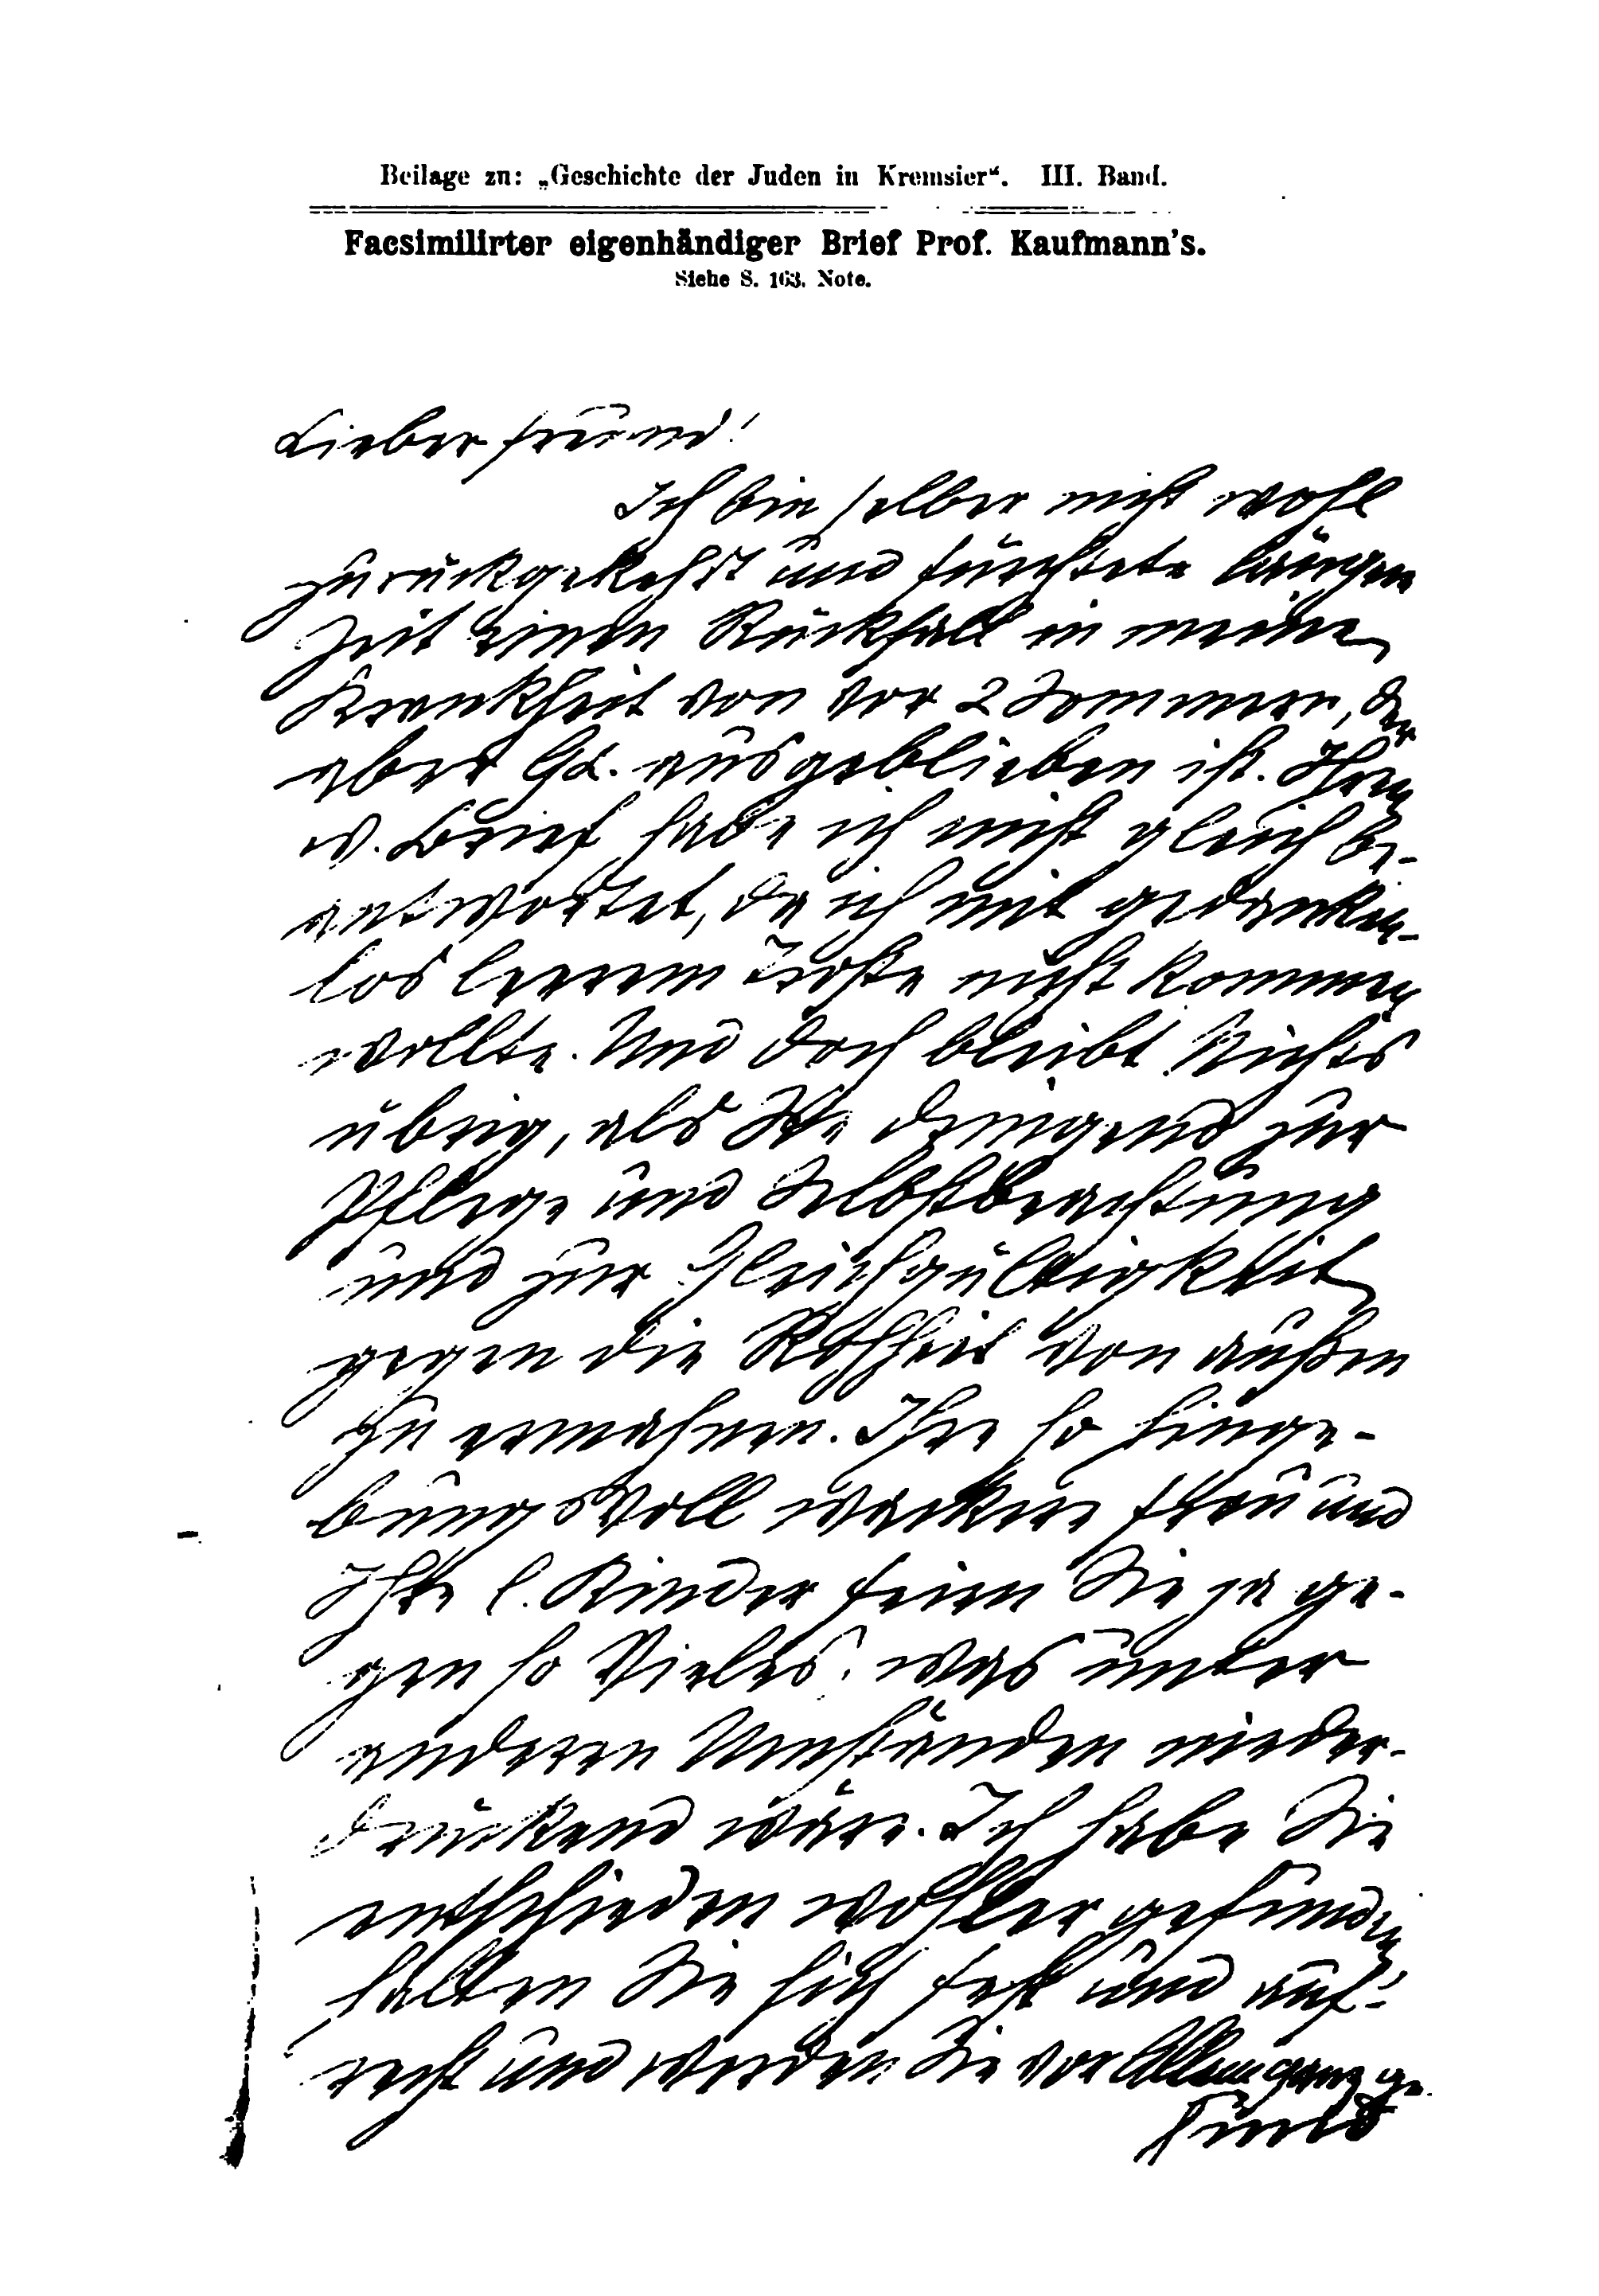 Beilage zu: „Geschichte der Juden in Kremsier“. III. Band.
Facsimilirter eigenhändiger Brief Prof. Kaufmann's.
Siehe S. 163. Note.
Lieber Freund!
Ich bin selber nicht wohl
zurückgekehrt und fürchtete längere
Zeit einen Rückfall in meine
Krankheit von vor 2 Sommern, der
aber Gs. ausgeblieben ist. Ihren
w. Brief habe ich nicht gleich be-
antwortet, da ich mit gedanken-
los leerem Troste nicht kommen
wollte. Und doch bleibt Nichts
übrig, als Sie dringend zur
Pflege und Selbstbeachtung
und zur Gleichgültigkeit
gegen die Rohheit von außen
zu ermahnen. Ihre so hinge-
bungsvoll wackere Frau und
Ihre l. Kinder feien Sie ja ge-
gen so Vieles, was unter
anderen Umständen nieder-
drückend wäre. Ich habe Sie
entschieden wohler gefunden
halten Sie sich fest und auf-
recht und werden Sie vor Allem ganz ge-
sund